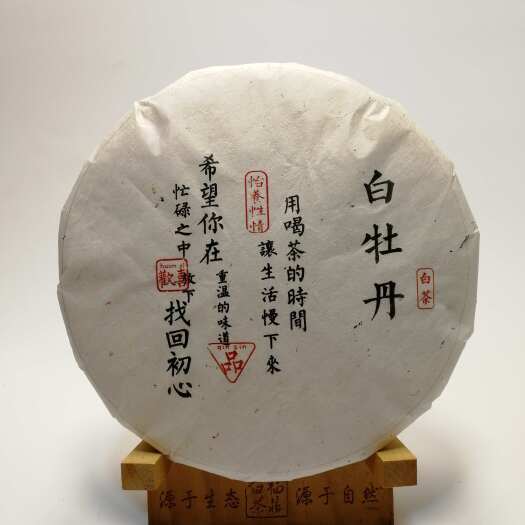 白牡丹
白茶
用喝茶的時間
讓生活慢下來
怡養性情
重溫的味道
品
希望你在
忙碌之中
放下
找回初心
歡喜
源于生态
福鼎白茶
源于自然